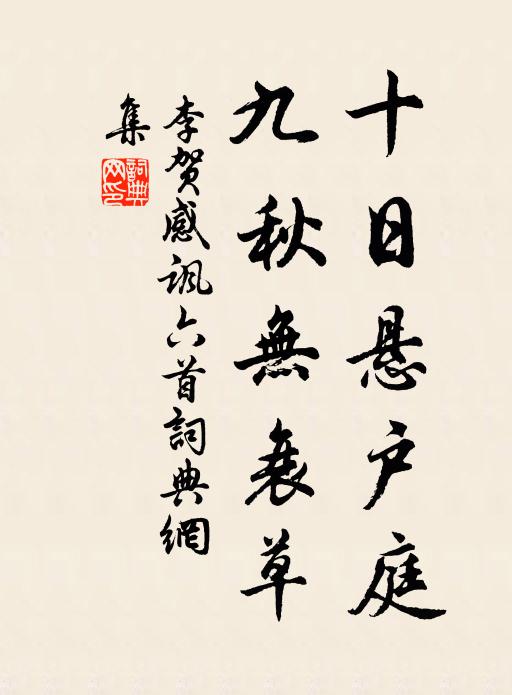 十日悬户庭
九秋無衰草
李贺感諷六首詞典網
集
詞典网印